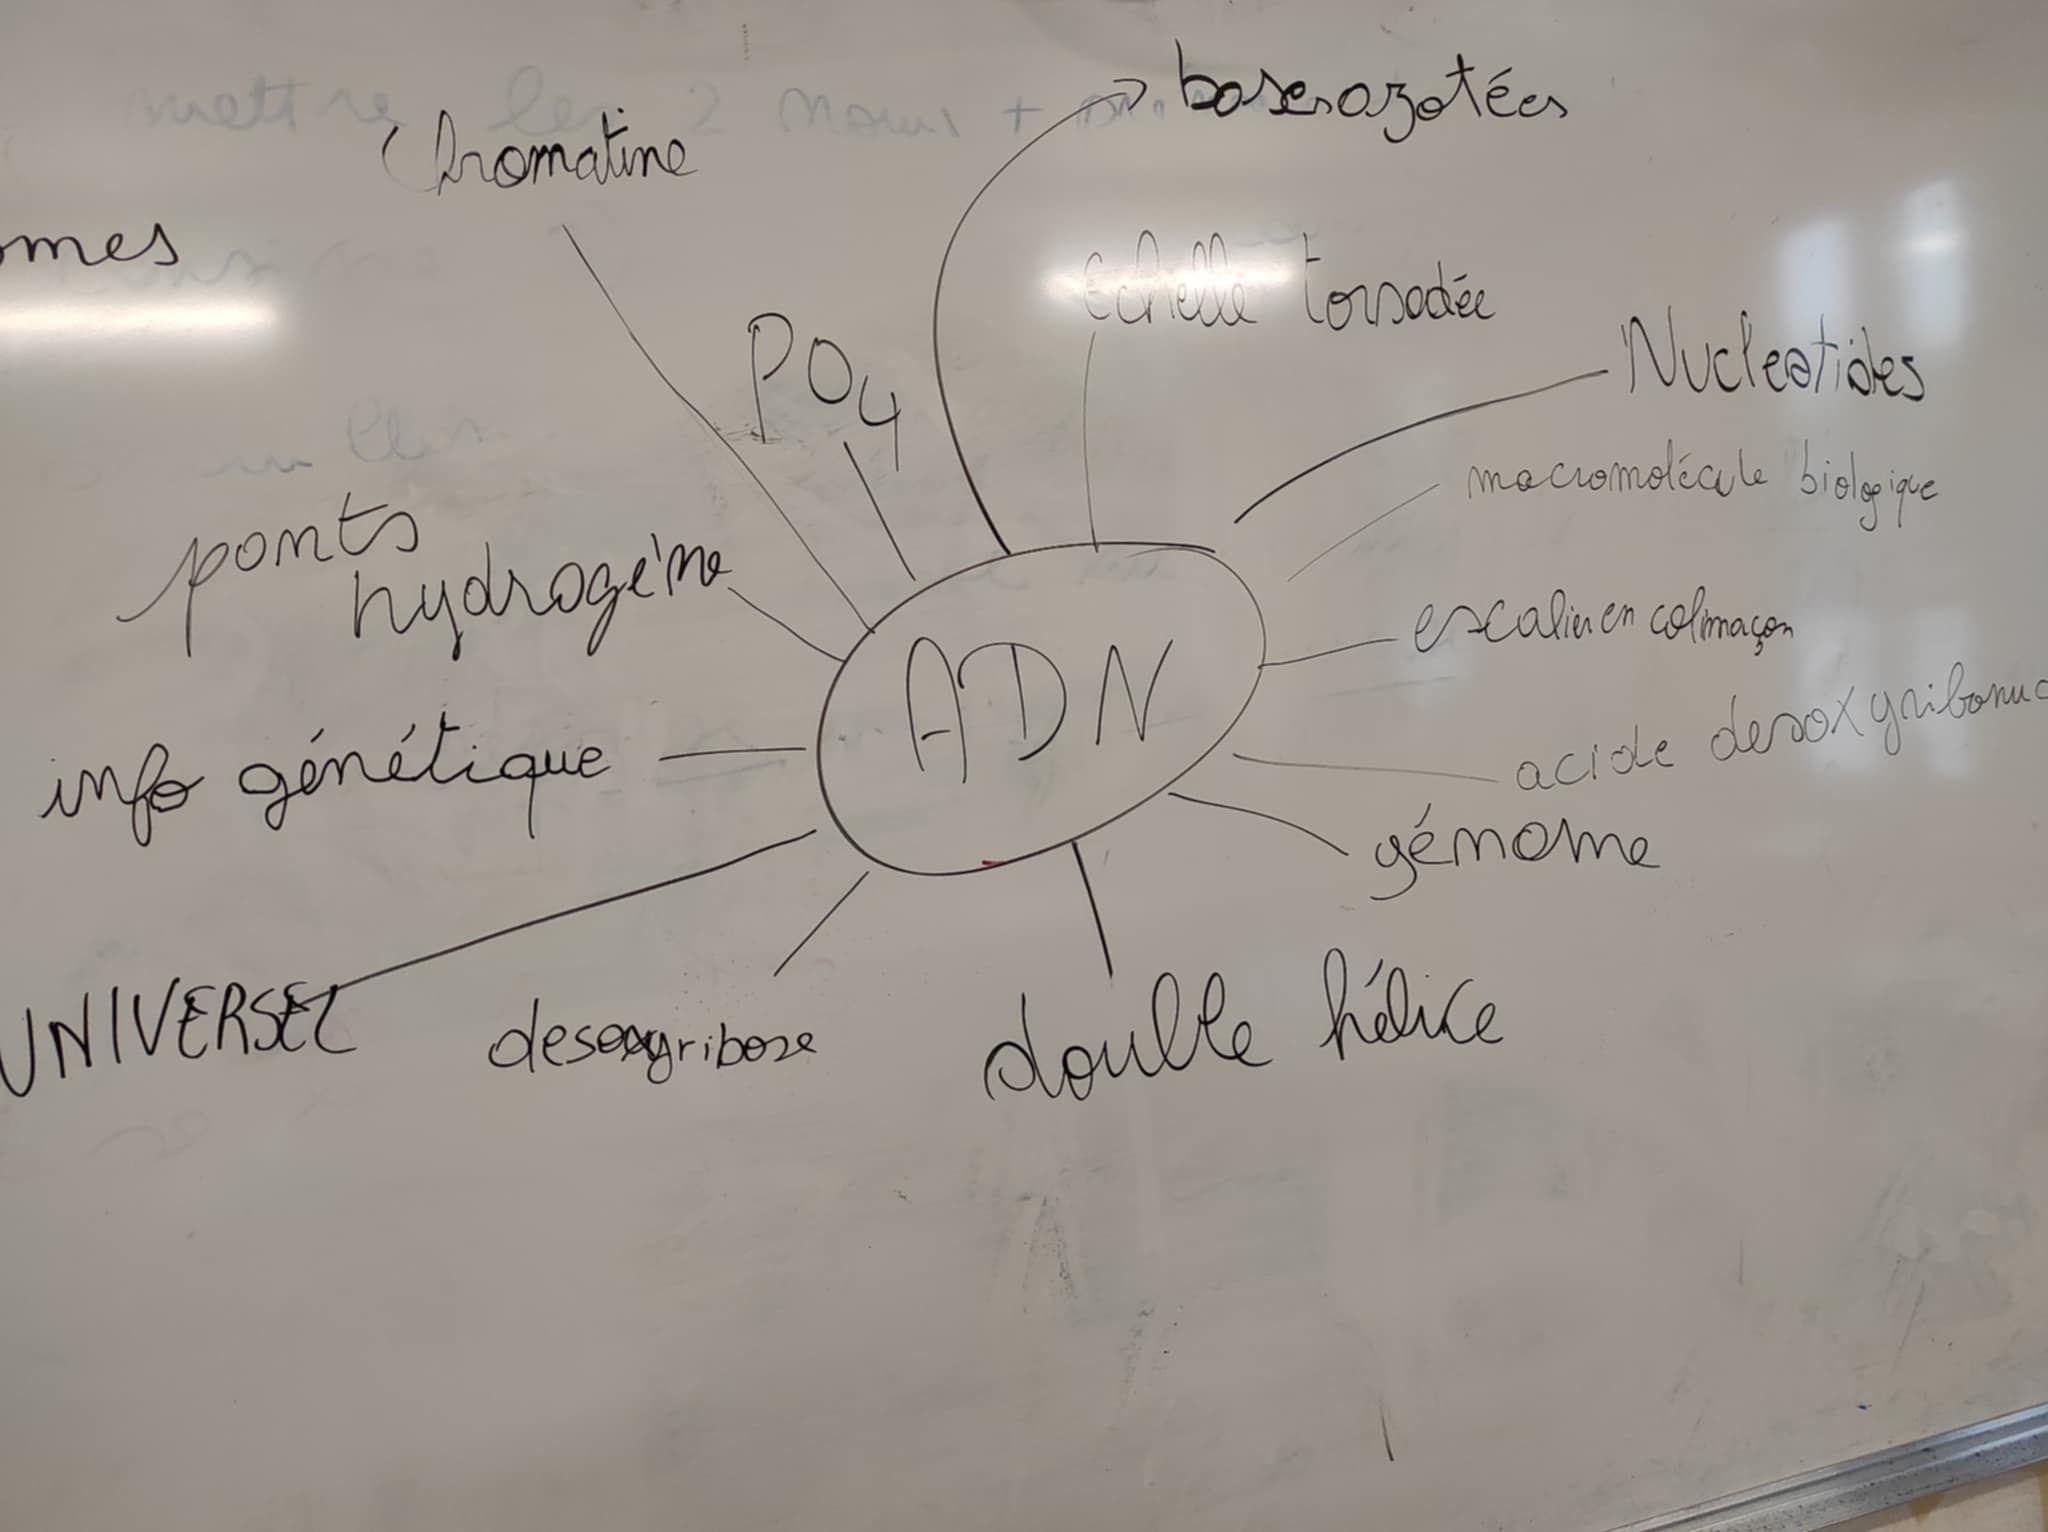 mettre les 2 noms +
bases azotées
Chromatine
omes
echelle torsadée
PO4
Nucleotides
macromolécule biologique
ponts
hydrogène
escalier en colimaçon
ADN
acide desoxyribonuc
info génétique
génome
UNIVERSEL
desoxyribose
double hélice